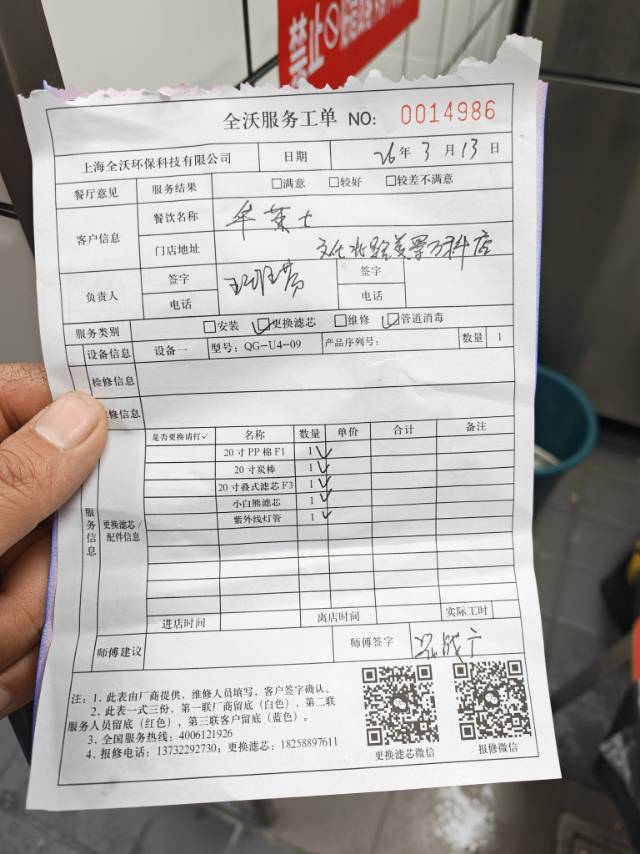 禁止
全沃服务工单 NO: 0014986
上海全沃环保科技有限公司 日期 26年 3月 13日
餐厅意见 服务结果 □满意 □较好 □较差不满意
客户信息 餐饮名称 华莱士
门店地址 文化北路美墅万科店
负责人 签字 签字
电话 电话
服务类别 □安装 ☑更换滤芯 □维修 ☑管道消毒
设备信息 设备一 型号: QG-U4-09 产品序列号: 数量 1
检修信息
修信息
服务信息 更换滤芯/配件信息
是否更换请打✓ 名称 数量 单价 合计 备注
20寸PP棉F1 1 ✓
20寸炭棒 1 ✓
20寸叠式滤芯F3 1 ✓
小白熊滤芯 1 ✓
紫外线灯管 1 ✓
进店时间 离店时间 实际工时
师傅建议 师傅签字
注: 1. 此表由厂商提供,维修人员填写,客户签字确认。
2. 此表一式三份,第一联厂商留底(白色),第二联
服务人员留底(红色),第三联客户留底(蓝色)。
3. 全国服务热线: 4006121926
4. 报修电话: 13732292730; 更换滤芯: 18258897611
更换滤芯微信 报修微信